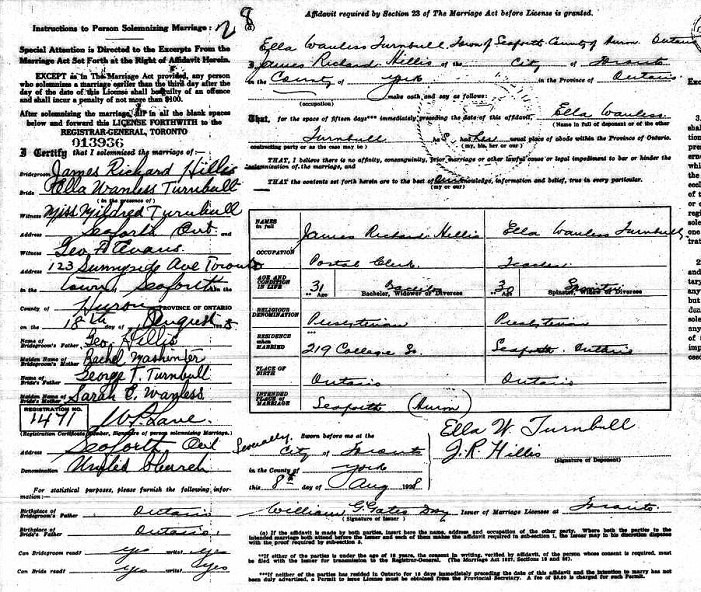 Instructions to Person Solemnizing Marriage:
Special Attention is Directed to the Excerpts From the
Marriage Act Set Forth at the Right of Affidavit Herein.
EXCEPT as in The Marriage Act provided, any person
who solemnizes a marriage earlier than the third day after the
day of the date of this License shall be guilty of an offence
and shall incur a penalty of not more than $100.
After solemnizing the marriage, fill in all the blank
spaces below and forward this LICENSE FORTHWITH to the
REGISTRAR-GENERAL, TORONTO
913936
I Certify that I solemnized the marriage of:
Bridegroom James Richard Hillis
Bride Ella Wanless Turnbull
(in the presence of)
Witness Miss Mildred Turnbull
Address Seaforth Ont and
Witness Geo A Evans
Address 123 Sunnyside Ave Toronto
in the town of Seaforth in the
County of Huron PROVINCE OF ONTARIO
on the 18th day of August 28
Name of Bridegroom's Father Geo. Hillis
Maiden Name of Bridegroom's Mother Rachel
Name of Bride's Father George T. Turnbull
Maiden Name of Bride's Mother Sarah E. Wanless
REGISTRATION NO.
1471 W. P. Lane
(Registration Certificate Number, Signature of person solemnizing Marriage.)
Address Seaforth Ont
Denomination United Church
For statistical purposes, please furnish the following information:—
Birthplace of Bridegroom's Father Ontario
Birthplace of Bride's Father Ontario
Can Bridegroom read? yes write? yes
Can Bride read? yes write? yes
28
Affidavit required by Section 23 of The Marriage Act before License is granted.
(a)
Ella Wanless Turnbull, Town of Seaforth County of Huron Ontario
I James Richard Hillis of the City of Toronto
in the County of York in the Province of Ontario
(occupation) make oath and say as follows:
That, for the space of fifteen days*** immediately preceding the date of this affidavit, Ella Wanless
(Name in full of deponent or of the other
Turnbull had her usual place of abode within the Province of Ontario.
contracting party as the case may be) (my, his, her or our)
THAT, I believe there is no affinity, consanguinity, prior marriage or other lawful cause or legal impediment to bar or hinder the
solemnization of the marriage, and
THAT the contents set forth herein are to the best of our knowledge, information and belief, true in every particular.
(my or our)
NAMES in full James Richard Hillis Ella Wanless Turnbull
OCCUPATION Postal Clerk Teacher
AGE AND CONDITION IN LIFE 31 ** Age Bachelor Bachelor, Widower or Divorcee 30 ** Age Spinster Spinster, Widow or Divorcee
RELIGIOUS DENOMINATION Presbyterian Presbyterian
RESIDENCE when MARRIED 219 College St Seaforth. Ontario
PLACE OF BIRTH Ontario Ontario
INTENDED PLACE OF MARRIAGE Seaforth (Huron)
Severally Sworn before me at the
City of Toronto
in the County of York
this 8th day of Aug 1928
Ella W. Turnbull
J. R. Hillis
(Signature of Deponent)
William G. Gates Issuer of Marriage Licenses at Toronto.
(Signature of Issuer)
(a) If the affidavit is made by both parties, insert here the name, address, and occupation of the other party. Where both the parties to the
intended marriage both attend before the issuer and each of them makes the affidavit required in sub-section 1, the issuer may in his discretion dispense
with the proof required by sub-section 5.
**If either of the parties is under the age of 18 years, the consent in writing, verified by affidavit, of the person whose consent is required, must
be filed with the issuer for transmission to the Registrar-General. (The Marriage Act 1927, Sections 16 and 20).
***If neither of the parties has resided in Ontario for 15 days immediately preceding the date of this affidavit and the intention to marry has not
been duly advertised, a Permit to issue License must be obtained from the Provincial Secretary. A fee of $5.00 is charged for such Permit.